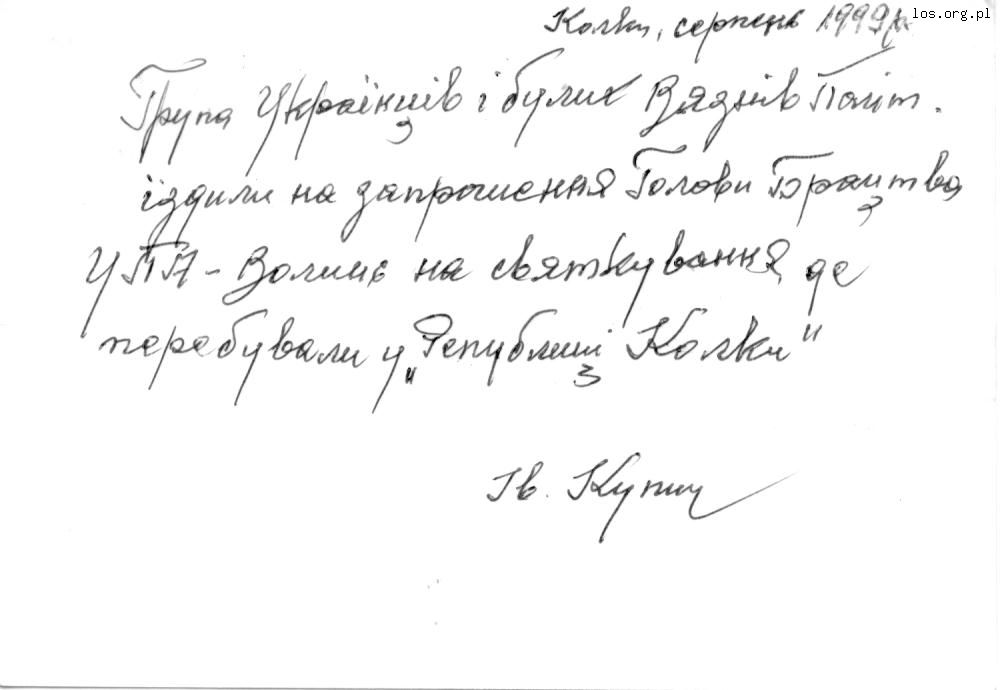 los.org.pl
Колки, серпень 1999 р.
Група Українців і булих Вязнів Політ.
їздили на запрошення Голови Брацтва
УПА - Волинь на святкування, де
перебували у „Републиці Колки"
Ів. Купиц